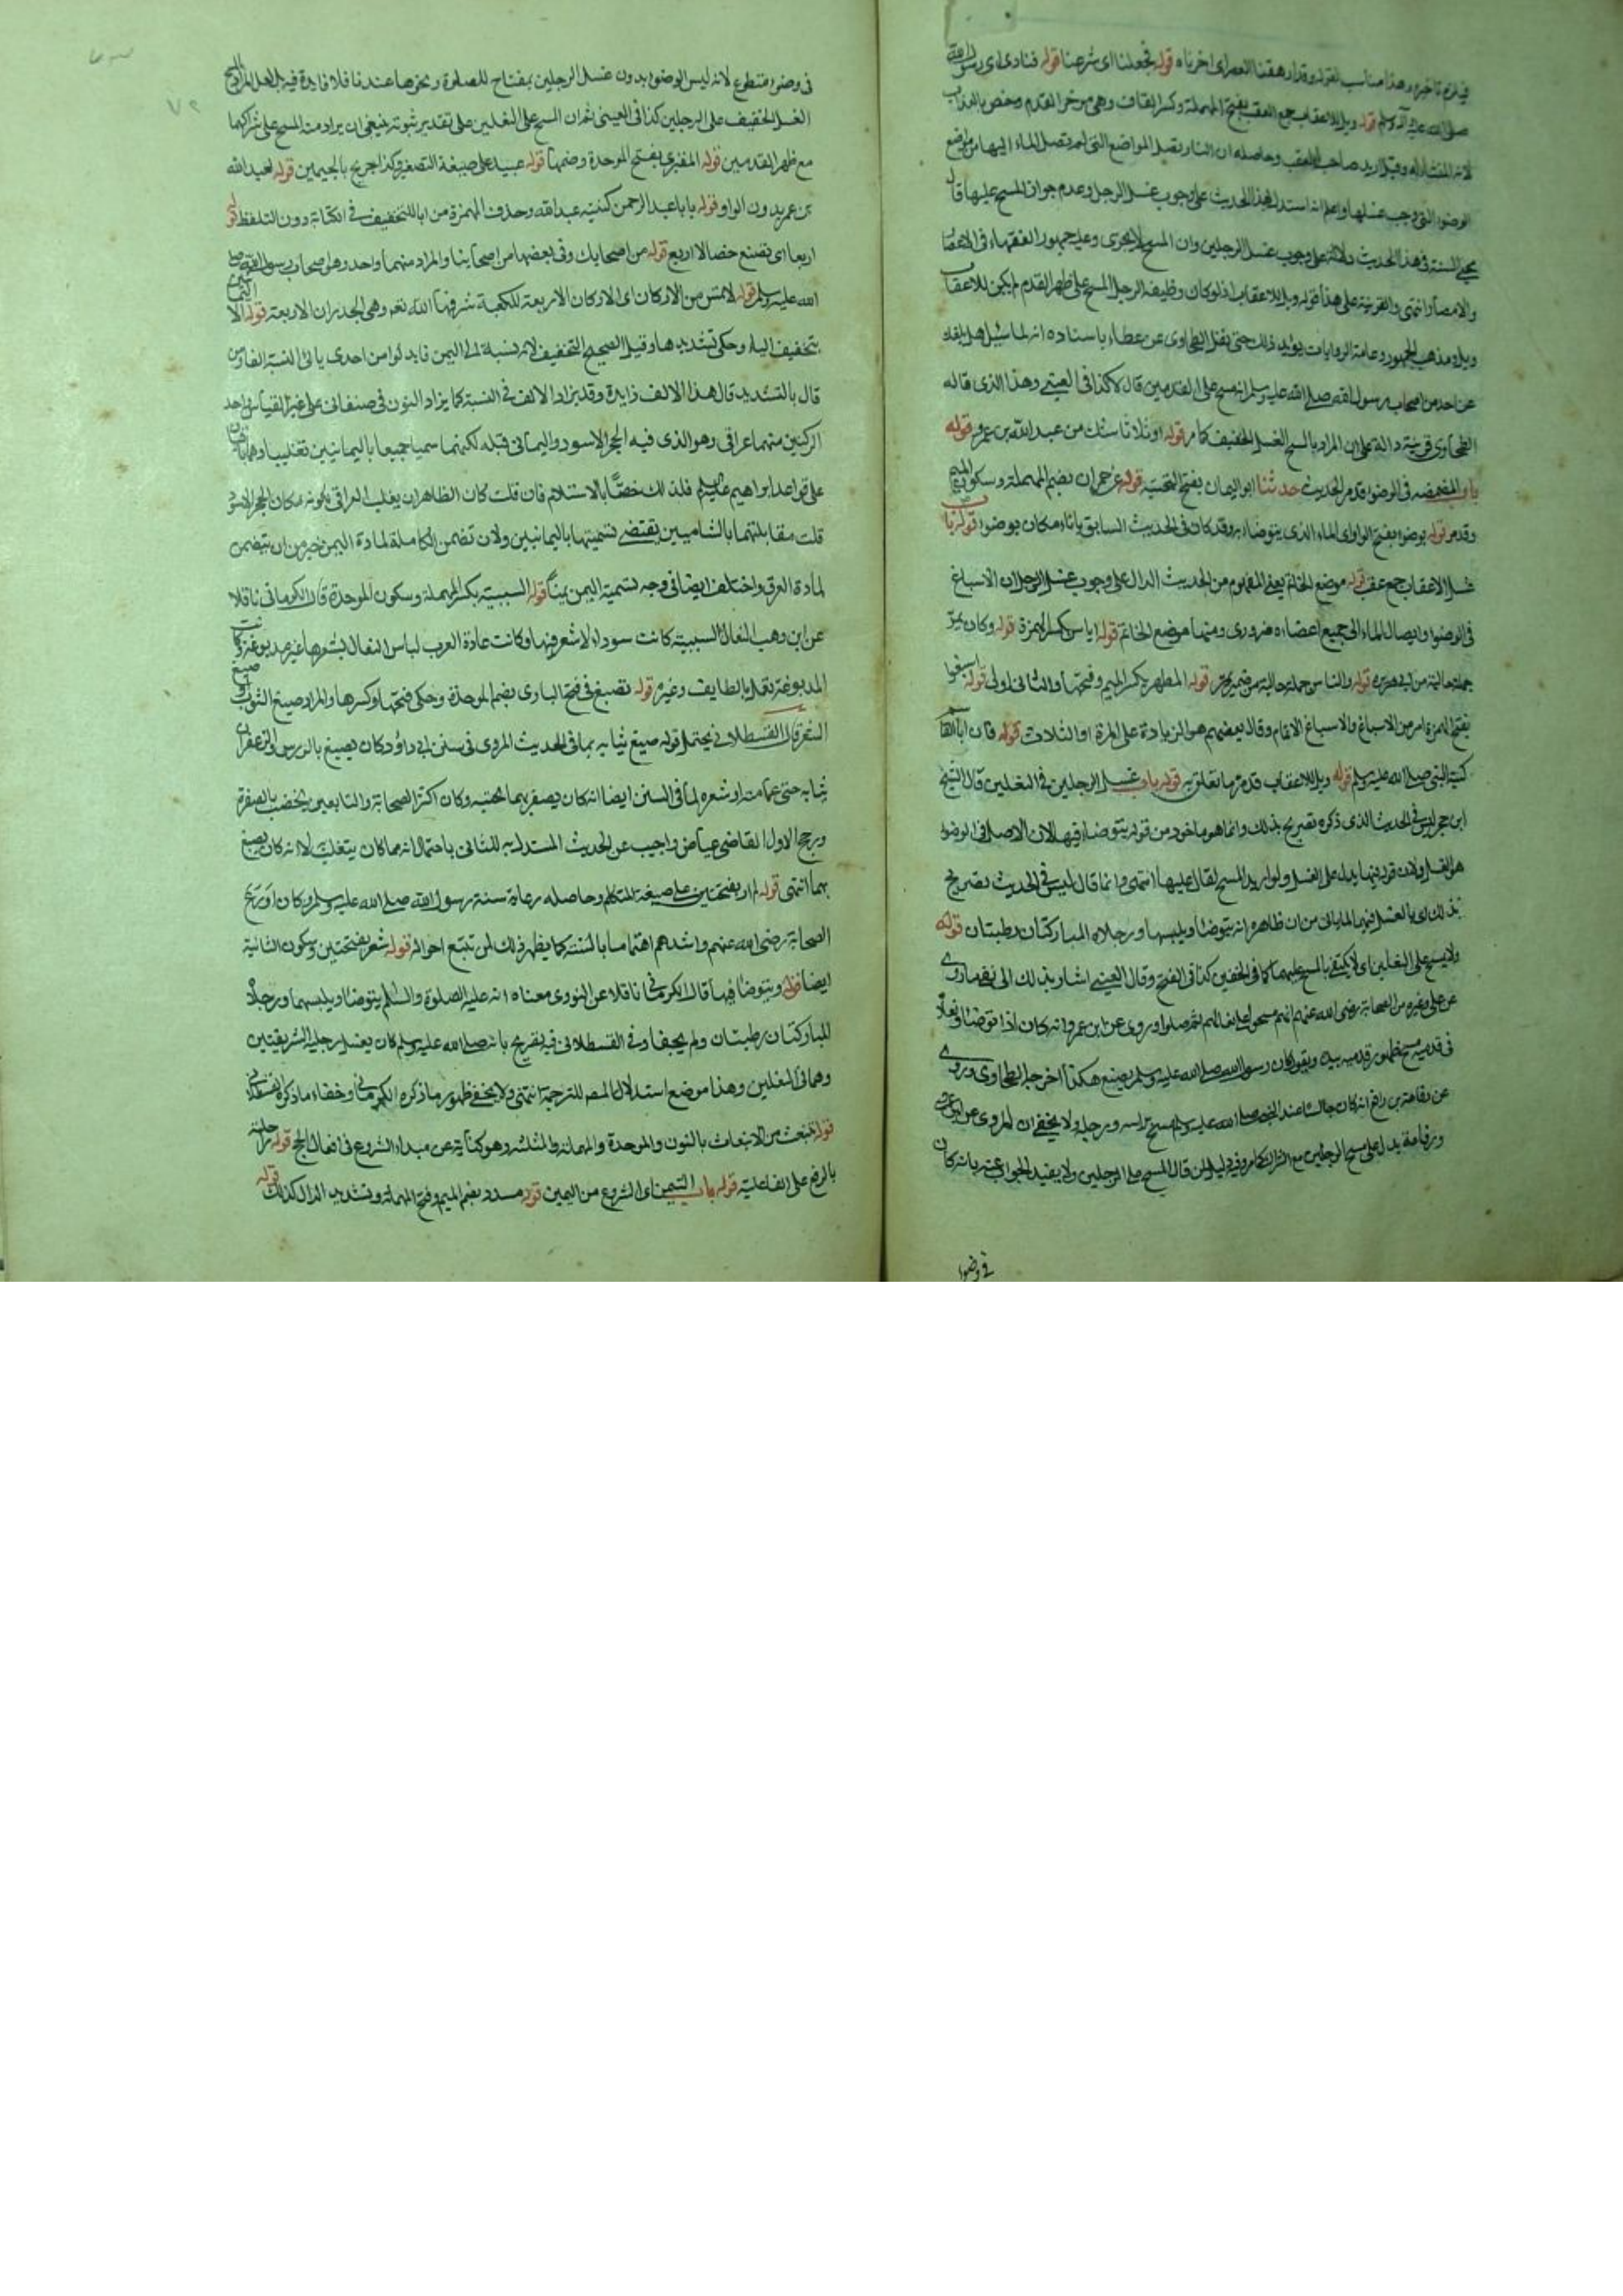 فيلزم تاخيره وهذا مناسب لقوله وقد ارهقنا العصر اى اخرناه قوله فجعلنا اى شرعنا قوله فنادى اى رسول الله
صلى الله عليه وآله وسلم قوله ويل للاعقاب جمع العقب بفتح المهملة وكسر القاف وهى موخر القدم وخص بالعذاب
لانه وقيل اريد صاحب العقب وحاصله ان النار تصل المواضع التى لم تصل الماء اليها من مواضع
الوضوء التى وجب غسلها واعلم انه استدل بهذا الحديث على وجوب غسل الرجل وعدم جواز المسح عليها قال
محيى السنة فى هذا الحديث دلالة على وجوب غسل الرجلين وان المسح لا يجزى وعليه جمهور الفقهاء فى الاعصار
والامصار انتهى والقرينة على هذا قوله ويل للاعقاب اذ لو كان وظيفة الرجل المسح على ظهر القدم لم يكن للاعقاب
ويل وهو مذهب الجمهور وعامة الروايات يويد ذلك حتى نقل الطحاوى عن عطاء باسناده انه لما سئل هل بلغك
عن احد من اصحاب رسول الله صلى الله عليه وسلم انه مسح على القدمين قال لا كذا فى العينى وهذا الذى قاله
الطحاوى قرينة دالة على ان المراد بالمسح الغسل الخفيف كما مر قوله او ثلاثا شك من عبد الله بن عمرو قوله
باب المضمضة فى الوضوء قد مر الحديث حدثنا ابو اليمان بفتح التحتية قوله عن حمران بضم المهملة وسكون الميم
وقد مر قوله بوضوء بفتح الواو اى الماء الذى يتوضا به وقد كان فى الحديث السابق باناء مكان بوضوء قوله باب
غسل الاعقاب جمع عقب قوله موضع الخاتم يعنى المفهوم من الحديث الدال على وجوب غسل الرجل ان الاسباغ
فى الوضوء وايصال الماء الى جميع اعضاءه ضرورى ومنها موضع الخاتم قوله اياس بكسر الهمزة قوله وكان يمر
جملة حالية من ابى هريرة قوله والناس جملة حالية من ضمير يمر قوله المطهرة بكسر الميم وفتحها والثانى اولى قوله اسبغوا
بفتح الهمزة امر من الاسباغ والاسباغ الاتمام وقال بعضهم هو الزيادة على المرة او الثلاث قوله فان ابا القاسم
كنية النبى صلى الله عليه وسلم قوله ويل للاعقاب قد مر ما يتعلق به قوله باب غسل الرجلين فى النعلين قال الشيخ
ابن حجر ليس فى الحديث الذى ذكره تصريح بذلك وانما هو ماخوذ من قوله يتوضا فيها لان الاصل فى الوضوء
هو الغسل ولان قوله فيها يدل على الغسل ولو اريد المسح لقال عليها انتهى وانما قال ليس فى الحديث تصريح
بذلك اى بالغسل فيها لما ياتى من ان ظاهره انه يتوضا ويلبسها ورجلاه المباركتان رطبتان قوله
ولا يمسح على النعلين اى لا يكتفى بالمسح عليهما كما فى الخفين كذا فى الفتح وقال العينى اشار بذلك الى نفى ما روى
عن على وغيره من الصحابة رضى الله عنهم انهم مسحوا على نعالهم ثم صلوا وروى عن ابن عمر وانه كان اذا توضا ونعلاه
فى قدميه مسح ظهور قدميه بيديه ويقول كان رسول الله صلى الله عليه وسلم يصنع هكذا اخرجه الطحاوى وروى
عن رفاعة بن رافع انه كان جالسا عند النبى صلى الله عليه وسلم مسح براسه ورجليه ولا يخفى ان المروى عن ابن عمر
ورفاعة يدل على مسح الرجلين مع الشراك كما مر وفيه دليل لمن قال المسح على الرجلين ولا يفيد الجواب عنه بانه كان
فى وضوء
فى وضوء متطوع لانه ليس الوضوء بدون غسل الرجلين بمفتاح للصلوة ونحوها عندنا فلا فايدة فيه بل لعل المراد بالمسح
الغسل الخفيف على الرجلين كذا فى العينى ثم ان المسح على النعلين على تقدير ثبوته ينبغى ان يراد منه المسح على شراكهما
مع ظهر القدمين قوله المقبرى بفتح الموحدة وضمها قوله عبيد على صيغة التصغير وكذا جريج بالجيمين قوله لعبد الله
بن عمر بدون الواو قوله يا با عبد الرحمن كنيته عبد الله وحذف الهمزة من ابا للتخفيف فى الكتابة دون التلفظ قوله
اربعا اى تصنع خصالا اربع قوله من اصحابك وفى بعضها من اصحابنا والمراد منهما واحد وهو اصحاب رسول الله صلى
الله عليه وسلم قوله لا تمس من الاركان اى الاركان الاربعة للكعبة شرفها الله تعم وهى الجدران الاربعة قوله الا اليمانيين
بتخفيف الياء وحكى تشديدها وقيل الصحيح التخفيف لانه نسبة الى اليمن فابدلوا من احدى يائى النسبة الفا ومن
قال بالتشديد قال هذا الالف زايدة وقد يزاد الالف فى النسبة كما يزاد النون فى صنعانى على غير القياس واحد
الركنين منهما عراقى وهو الذى فيه الحجر الاسود واليمانى قبله لكنهما سميا جميعا باليمانيين تغليبا وهما باقيان
على قواعد ابراهيم عليه السلام فلذلك خصا بالاستلام فان قلت كان الظاهر ان يغلب العراقى لكونه مكان الحجر الاسود
قلت مقابلتهما بالشاميين يقتضى تسميتها باليمانيين ولان تضمن الكاملة لمادة اليمن خير من ان يتضمن
لمادة العرق واختلف ايضا فى وجه تسمية اليمن يمنا قوله السبتية بكسر المهملة وسكون الموحدة قال الكرمانى ناقلا
عن ابن وهب النعال السبتية كانت سوداء لا شعر فيها وكانت عادة العرب لباس النعال بشعورها غير مدبوغة وكانت
المدبوغة تعمل بالطايف وغيره قوله تصبغ فى فتح البارى بضم الموحدة وحكى فتحها وكسرها والمراد صبغ الثوب او صبغ
الشعر قال القسطلانى يحتمل قوله صبغ ثيابه بما فى الحديث المروى فى سنن ابى داؤد كان يصبغ بالورس والزعفران
ثيابه حتى عمامته او شعره لما فى السنن ايضا انه كان يصفر بهما لحيته وكان اكثر الصحابة والتابعين يخضب بالصفرة
ورجح الاول القاضى عياض واجيب عن الحديث المستدل به للثانى باحتمال انه مما كان يتطيب لا انه كان يصبغ
بهما انتهى قوله لم ار بفتحتين على صيغة المتكلم وحاصله رعاية سنة رسول الله صلى الله عليه وسلم وكان اورع
الصحابة رضى الله عنهم واشدهم اهتماما بالسنة كما يظهر ذلك لمن تتبع احواله قوله شعر بفتحتين وسكون الثانية
ايضا قوله ويتوضا فيها قال الكرمانى ناقلا عن النووى معناه انه عليه الصلوة والسلم يتوضا ويلبسهما ورجلاه
المباركتان رطبتان ولم يجففا وفى القسطلانى فيه تصريح بانه صلى الله عليه وسلم كان يغسل رجليه الشريفتين
وهما فى النعلين وهذا موضع استدلال المصم للترجمة انتهى ولا يخفى ظهور ما ذكره الكرمانى وخفاء ما ذكره القسطلانى
قوله تنبعث من الانبعاث بالنون والموحدة والمهملة والمثلثه وهو كناية عن مبداء الشروع فى افعال الحج قوله راحلته
بالرفع على الفاعلية قوله باب التيمن اى الشروع من اليمين قوله مسدد بضم الميم وفتح المهملة وتشديد الدال كذلك قوله